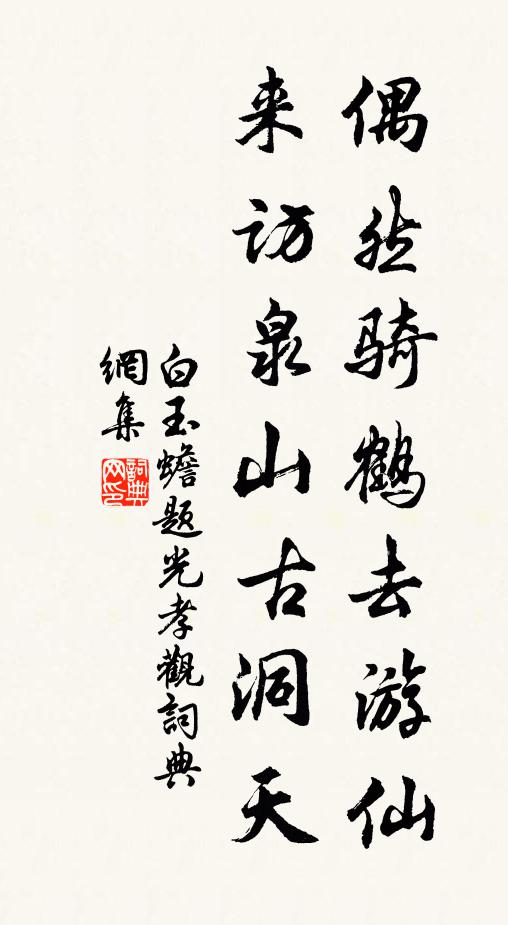 偶然骑鹤去游仙
来访泉山古洞天
白玉蟾题光孝觀詞典
網集
詞典
网印